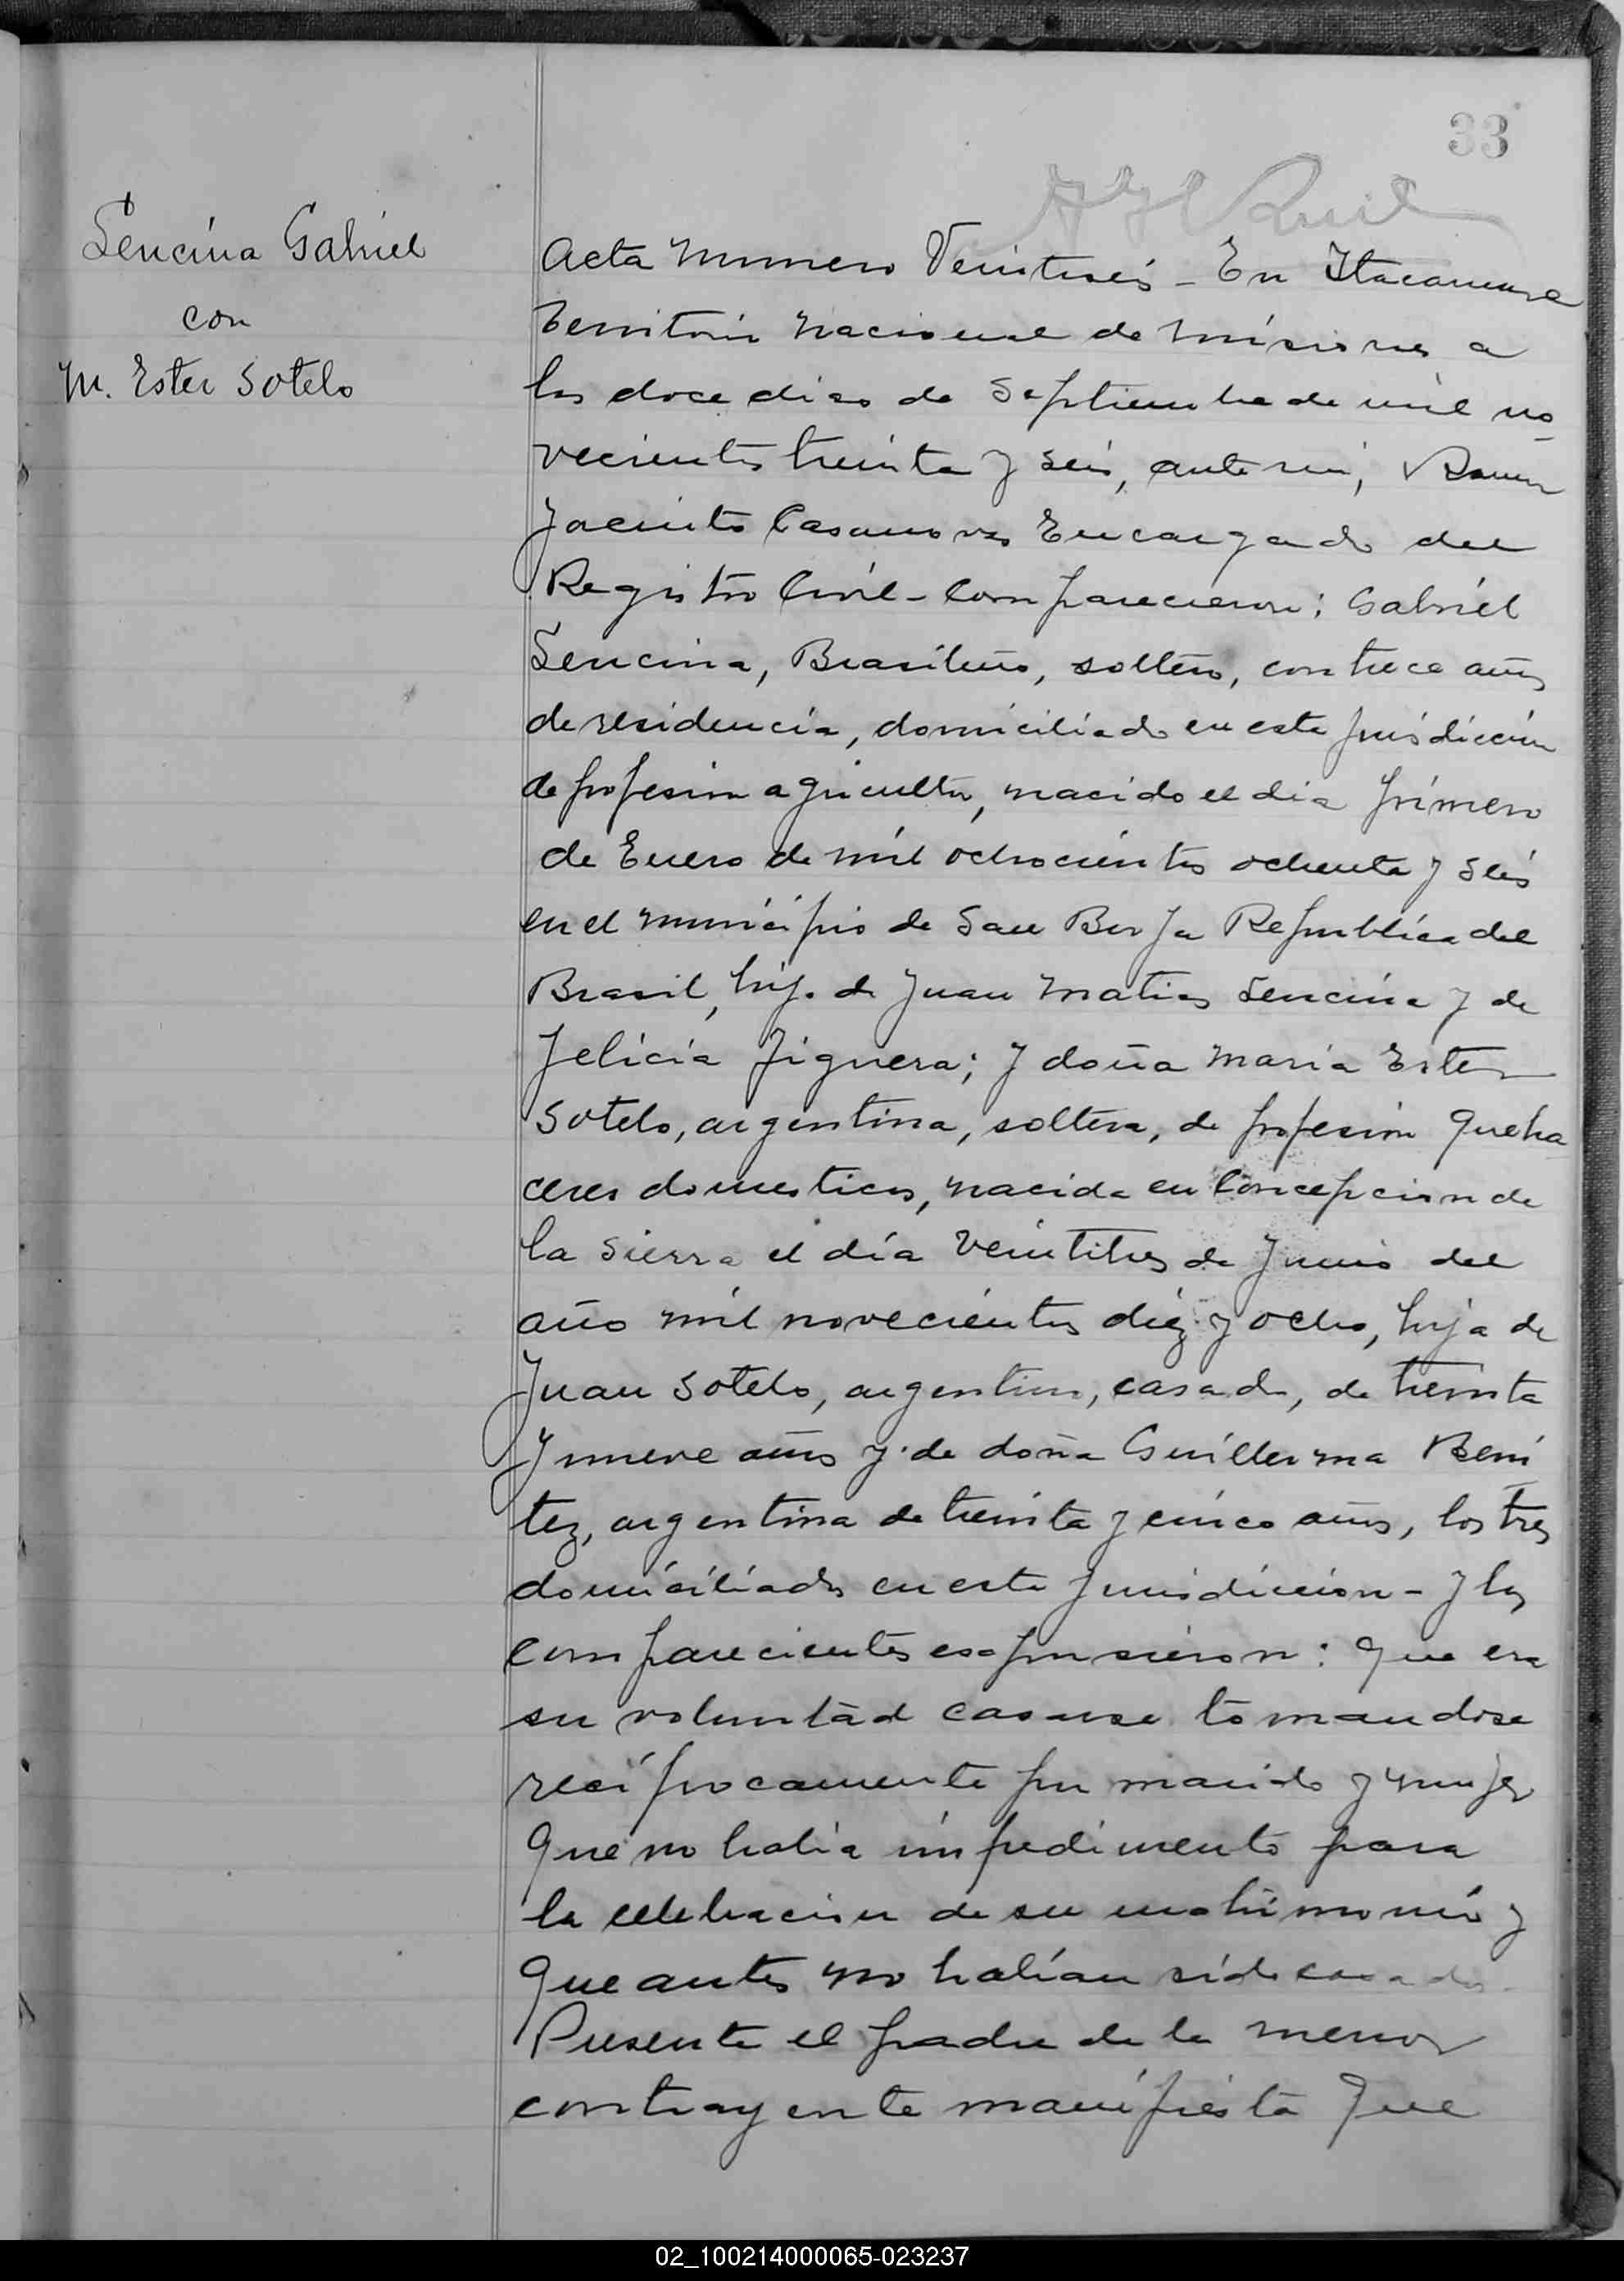 33
Lencina Gabriel
con
M. Ester Sotelo
Acta numero Veintiseis - En Itacaruare
Territorio Nacional de Misiones a
los doce dias de Septiembre de mil no
vecientos treinta y seis, ante mi, Ramon
Jacinto Casanovas Encargado del
Registro Civil - Comparecieron: Gabriel
Lencina, Brasileño, soltero, con trece años
de residencia, domiciliado en esta jurisdicción
de profesion agricultor, nacido el dia primero
de Enero de mil ochocientos ochenta y seis
en el municipio de San Borja Republica del
Brasil, hijo de Juan Matias Lencina y de
Felicia Figuera; y doña Maria Ester
Sotelo, argentina, soltera, de profesion queha
ceres domesticos, nacida en Concepcion de
la Sierra el día veintitres de Junio del
año mil novecientos diez y ocho, hija de
Juan Sotelo, argentino, casado, de treinta
y nueve años y de doña Guillerma Beni
tez, argentina de treinta y cinco años, los tres
domiciliados en esta jurisdiccion - y los
comparecientes expusieron: que era
su voluntad casarse tomandose
recíprocamente por marido y mujer
que no habia impedimento para
la celebracion de su matrimonio y
que antes no habían sido casados.
Presente el padre de la menor
contrayente manifiesta que
02_100214000065-023237